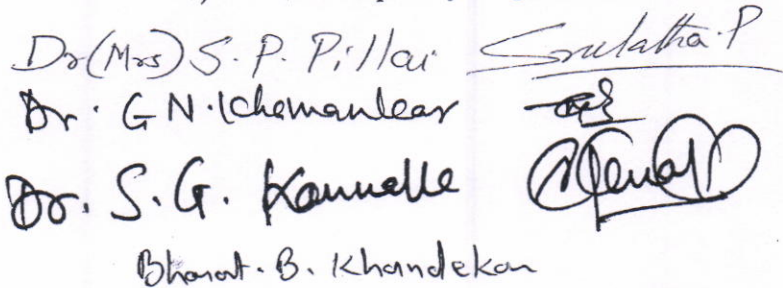 Dr(Mrs) S. P. Pillai Srulatha. P
Dr. G N. Khemankar
Dr. S. G. Kannelle
Bharat. B. Khandekar